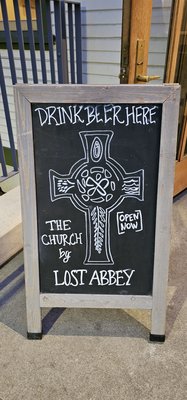 DRINK BEER HERE
THE
CHURCH
by
LOST ABBEY
OPEN
NOW